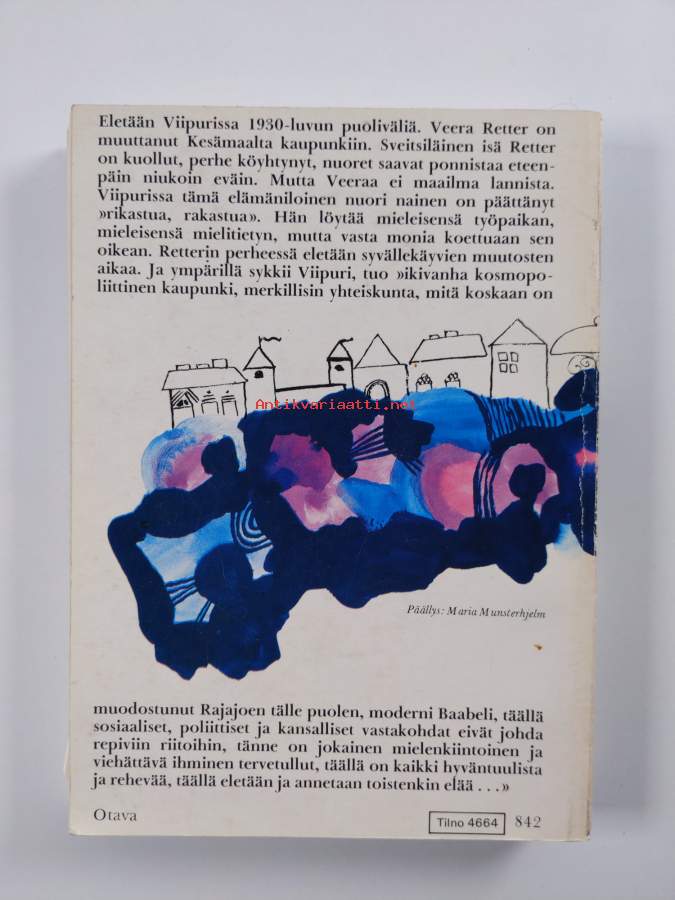 Eletään Viipurissa 1930-luvun puoliväliä. Veera Retter on
muuttanut Kesämaalta kaupunkiin. Sveitsiläinen isä Retter
on kuollut, perhe köyhtynyt, nuoret saavat ponnistaa eteen-
päin niukoin eväin. Mutta Veeraa ei maailma lannista.
Viipurissa tämä elämäniloinen nuori nainen on päättänyt
»rikastua, rakastua». Hän löytää mieleisensä työpaikan,
mieleisensä mielitietyn, mutta vasta monia koettuaan sen
oikean. Retterin perheessä eletään syvällekäyvien muutosten
aikaa. Ja ympärillä sykkii Viipuri, tuo »ikivanha kosmopo-
liittinen kaupunki, merkillisin yhteiskunta, mitä koskaan on
Antikvariaatti.net
Päällys: Maria Munsterhjelm
muodostunut Rajajoen tälle puolen, moderni Baabeli, täällä
sosiaaliset, poliittiset ja kansalliset vastakohdat eivät johda
repiviin riitoihin, tänne on jokainen mielenkiintoinen ja
viehättävä ihminen tervetullut, täällä on kaikki hyväntuulista
ja rehevää, täällä eletään ja annetaan toistenkin elää . . .»
Otava
Tilno 4664
842